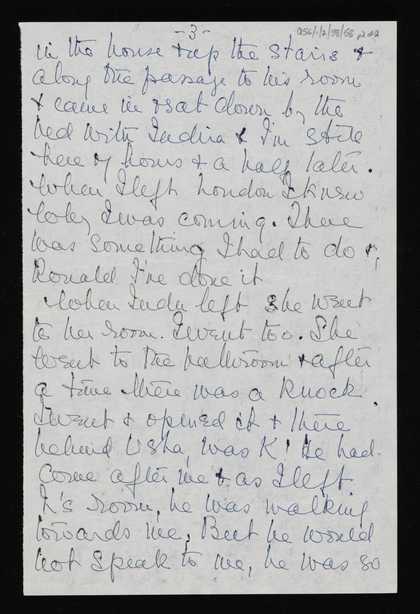 -3-
in the house & up the stairs &
along the passage to his room
& came in & sat down by the
bed with Indira & I'm still
here 7 hours & a half later.
When I left London I knew
why I was coming. There
was something I had to do &,
Ronald I've done it
When Indu left she went
to her room. I went too. She
went to the bathroom & after
a time there was a knock.
I went & opened it & there
behind Usha, was K! He had
come after me & as I left
I's room, he was walking
towards me. But he would
not speak to me, he was so